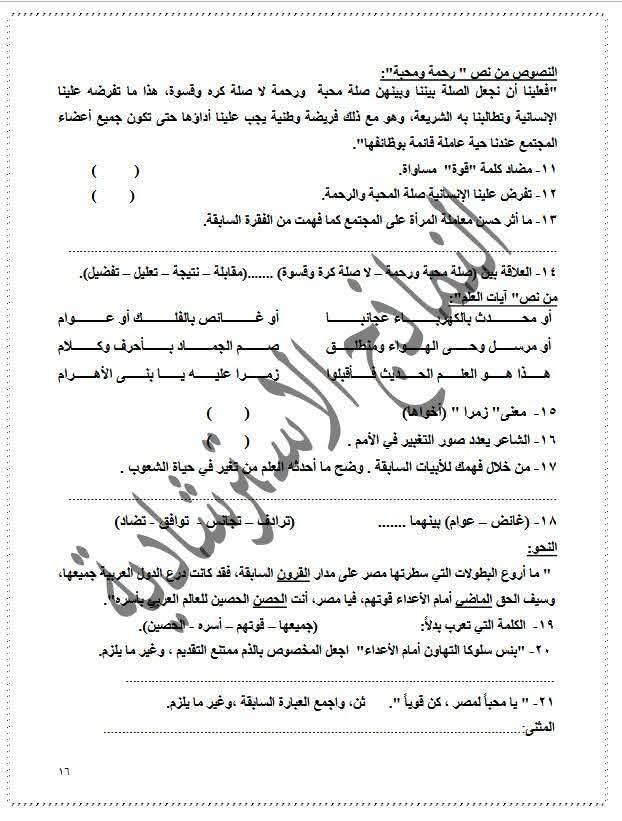 النصوص من نص " رحمة ومحبة":
"فعلينا أن نجعل الصلة بيننا وبينهن صلة محبة ورحمة لا صلة كره وقسوة، هذا ما تفرضه علينا
الإنسانية وتطالبنا به الشريعة، وهو مع ذلك فريضة وطنية يجب علينا أداؤها حتى تكون جميع أعضاء
المجتمع عندنا حية عاملة قائمة بوظائفها".
١١- مضاد كلمة "قوة" مساواة. ( )
١٢- تفرض علينا الإنسانية صلة المحبة والرحمة. ( )
١٣- ما أثر حسن معاملة المرأة على المجتمع كما فهمت من الفقرة السابقة.
١٤- العلاقة بين (صلة محبة ورحمة – لا صلة كرة وقسوة) .......(مقابلة – نتيجة – تعليل – تفضيل).
من نص" آيات العلم":
أو محدث بالكهرباء عجائبا أو غانص بالفلك أو عوام
أو مرسل وحى الهواء ومنطلق صم الجماد بأحرف وكلام
هذا هو العلم الحديث فأقبلوا زمرا عليه يا بنى الأهرام
١٥- معنى" زمرا " (أخواها) ( )
١٦- الشاعر يعدد صور التغيير في الأمم . ( )
١٧- من خلال فهمك للأبيات السابقة . وضح ما أحدثه العلم من تغير في حياة الشعوب .
١٨- (غانص – عوام) بينهما ....... (ترادف – تجانس - توافق - تضاد)
النحو:
" ما أروع البطولات التي سطرتها مصر على مدار القرون السابقة، فقد كانت درع الدول العربية جميعها،
وسيف الحق الماضي أمام الأعداء قوتهم، فيا مصر، أنت الحصن الحصين للعالم العربي بأسره".
١٩- الكلمة التي تعرب بدلاً: (جميعها – قوتهم – أسره - الحصين).
٢٠- "بنس سلوكا التهاون أمام الأعداء" اجعل المخصوص بالذم ممتنع التقديم ، وغير ما يلزم.
٢١- " يا محباً لمصر ، كن قوياً ". ثن، واجمع العبارة السابقة ،وغير ما يلزم.
المثنى:
١٦
النماذج الاسترشادية